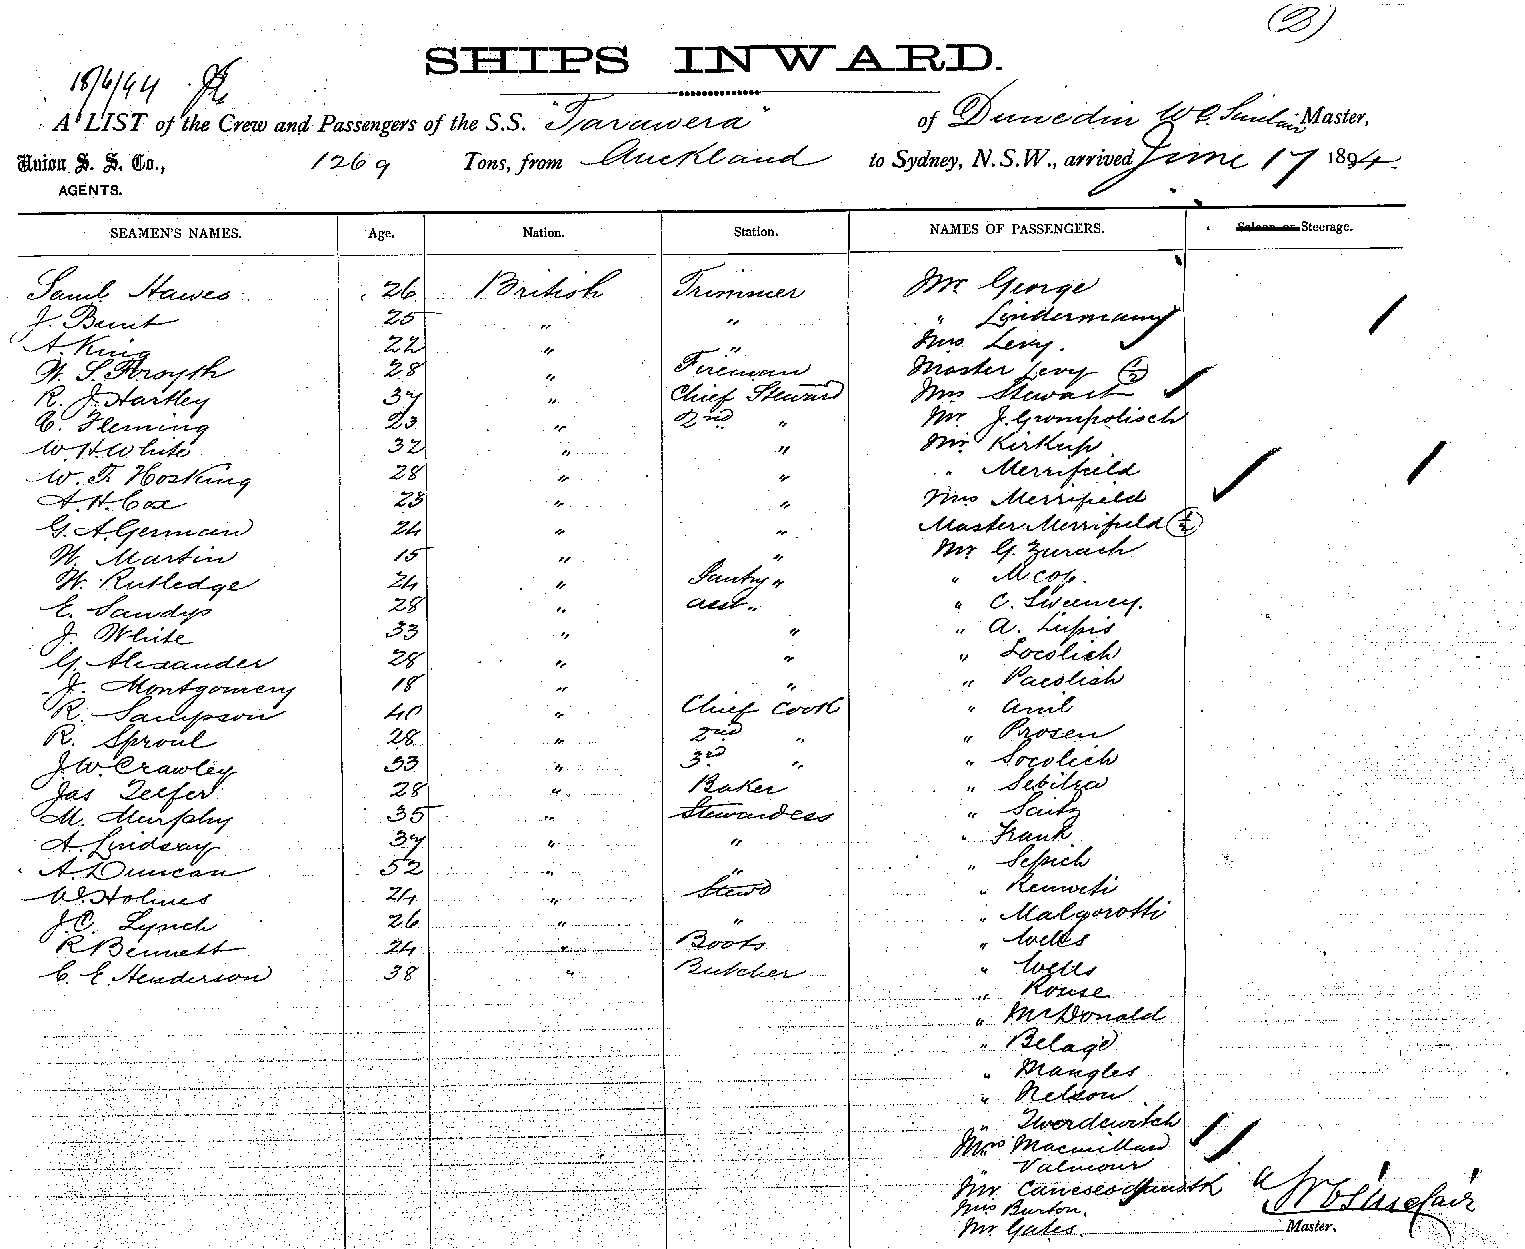 (B)
SHIPS INWARD.
18/6/94
A LIST of the Crew and Passengers of the S.S. "Tarawera" of Dunedin W C. Sinclair Master,
Union S. S. Co., 1269 Tons, from Auckland to Sydney, N.S.W., arrived June 17 1894.
AGENTS.
SEAMEN'S NAMES. Age. Nation. Station. NAMES OF PASSENGERS. Saloon or Steerage.
Saml Hawes 26 British Trimmer Mr George
J. Bunt 25 " " " Lindermann
A. King 22 " " Mrs Levy.
W. S. Forsyth 28 " Fireman Master Levy 1/2
R. J. Hartley 37 " Chief Steward Mrs Stewart
C. Fleming 23 " 2nd " Mr. J. Grompolisch
W. H. White 32 " " Mr Kirkup
W. F. Hosking 28 " " " Merrifield
A. H. Cox 23 " " Mrs Merrifield
G. A. German 24 " " Master Merrifield 1/2
W. Martin 15 " " Mr G. Zurach
W. Rutledge 24 " Pantry " "
E. Sandys 28 " asst " " C. Sweeney.
J. White 33 " " " A. Lupis
G. Alexander 28 " " " Socolich
J. Montgomery 18 " " " Pacolich
R. Sampson 40 " Chief Cook " Anil
R. Sproul 28 " 2nd " " Prosen
J. W. Crawley 33 " 3rd " " Socolich
Jas Telfer 28 " Baker " Sebitza
M. Murphy 35 " Stewardess "
A. Lindsay 37 " " " Frank
A. Duncan 52 " " " Sepich
W. Holmes 24 " Stewd "
J. C. Lynch 26 " " " Malgorotti
R Bennett 24 " Boots " Wells
C. E. Henderson 38 " Butcher " Wells
" Rouse
" McDonald
" Belage
" Mangles
" Nelson
" Twordewitch
Mrs Macmillan
" Valmour
Mr
Mrs Burton.
Mr Gates.
W C Sinclair
Master.